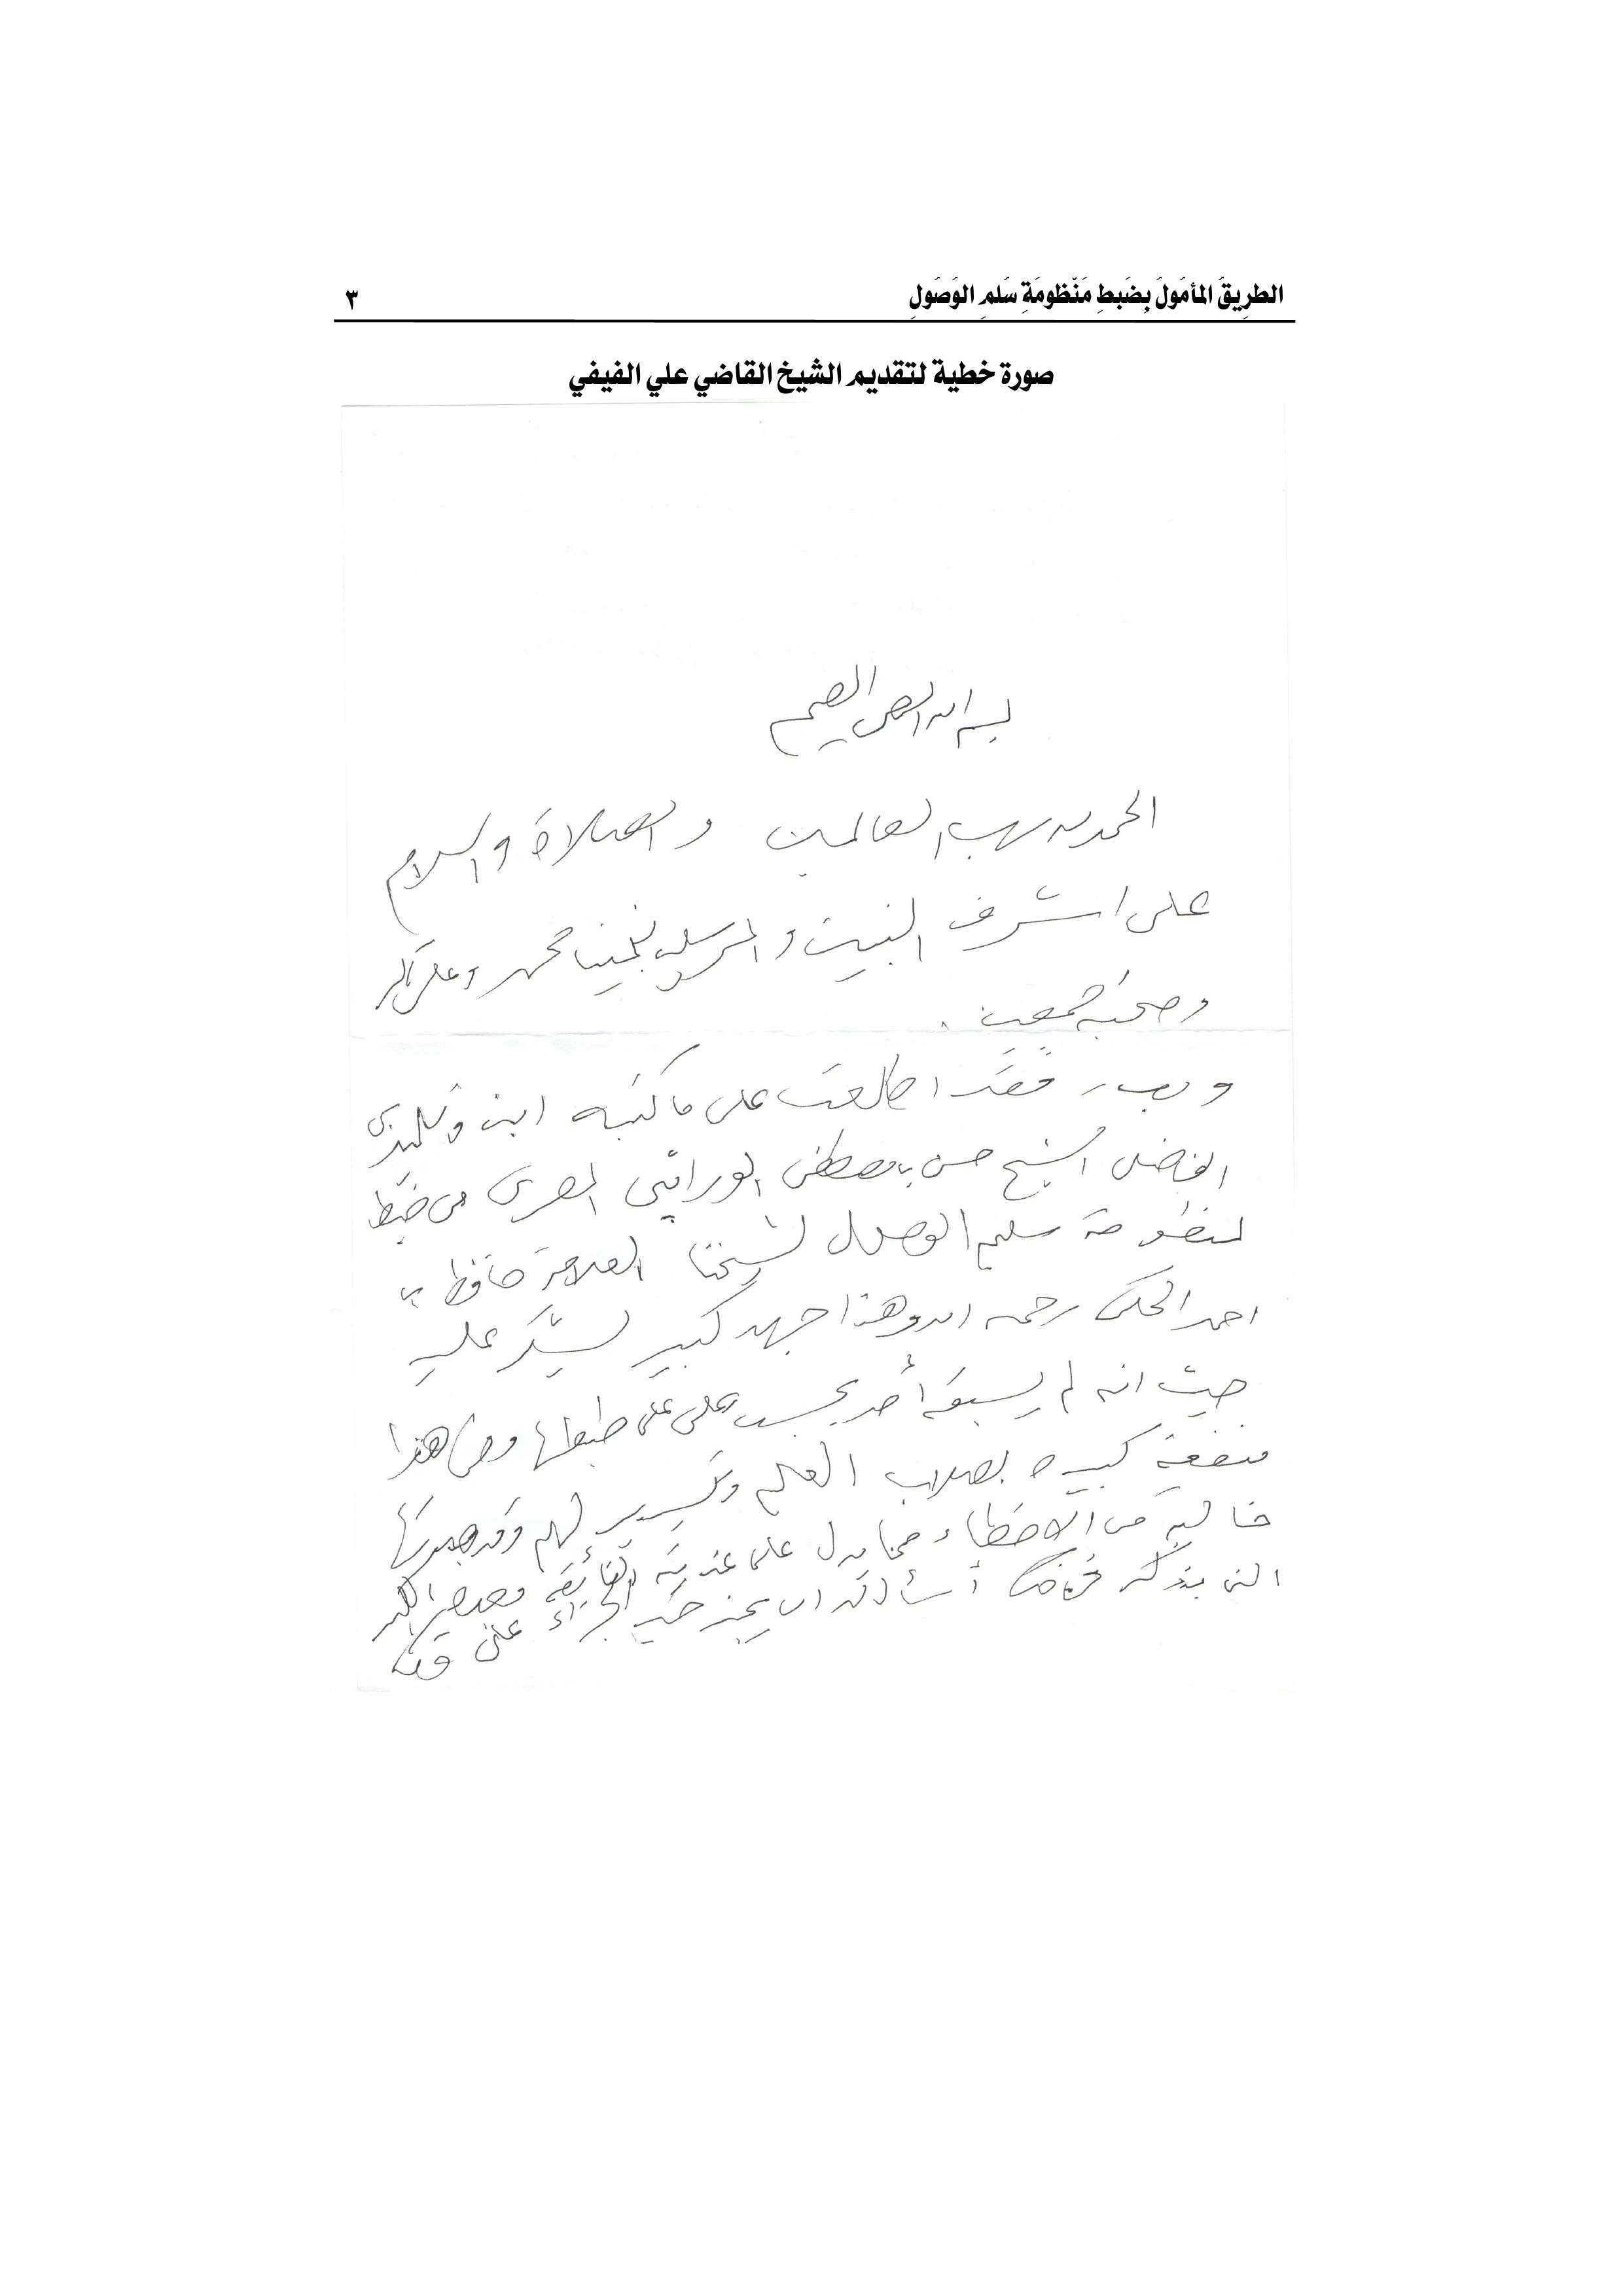 الطريقُ المأمُولُ بِضَبطِ مَنْظومَةِ سُلمِ الوُصُولِ ٣
صورة خطية لتقديم الشيخ القاضي علي الفيفي
بسم الله الرحمن الرحيم
الحمد لله رب العالمين والصلاة والسلام
على اشرف النبيين والمرسلين نبينا محمد وعلى آله
وصحبه اجمعين .
وبعد فقد اطلعت على ما كتبه ابني وتلميذي
الفاضل الشيخ حسن بن مصطفى الوراقي المصري من ضبط
لمنظومة سلم الوصول لشيخنا العلامة حافظ بن
احمد الحكمي رحمه الله وهذا جهد كبير يشكر عليه
حيث انه لم يسبقه أحد بحسب علمي على طبعها وفي هذا
منفعة كبيره لطلاب العلم وتيسير لهم وقد وجدتها
خالية من الاخطاء مما يدل على عنايته الفائقة
أسأل الله ان يجزيه خير الجزاء على